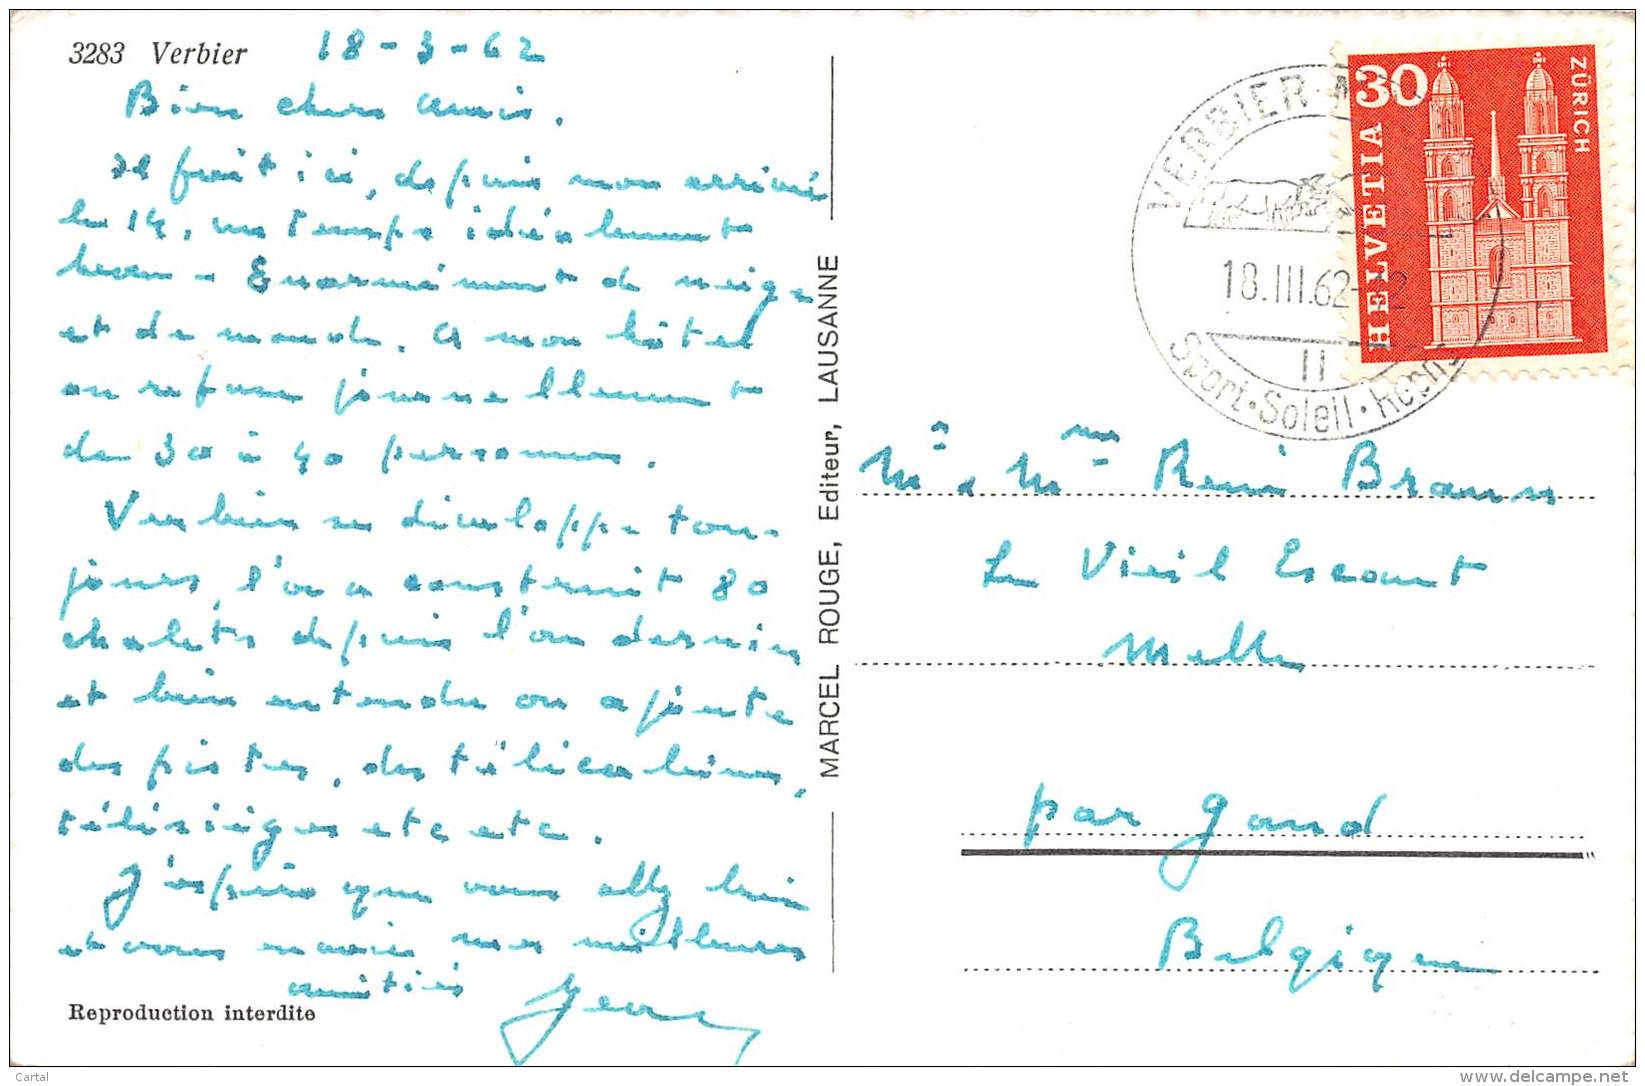 3283 Verbier 18-3-62
Bien chers amis.
Il fait ici, depuis mon arrivée
le 14, un temps idéalement
beau - Enormément de neige
et de monde. A mon hôtel
on refuse journellement
de 30 à 40 personnes.
Verbier se développe tou-
jours, l'on a construit 80
chalets depuis l'an dernier
et bien entendu on ajoute
des pistes, des télécabines,
télésièges etc etc.
J'espère que vous allez bien
et vous envoie mes meilleures
amitiés
Jean
Reproduction interdite
MARCEL ROUGE, Editeur, LAUSANNE
VERBIER
18.III.62-12
II
Sport·Soleil·Repos
30
HELVETIA
ZÜRICH
Mr & Mme René Braun
Le Vieil Escaut
Melle
par Gand
Belgique
Cartal
delcampe.net